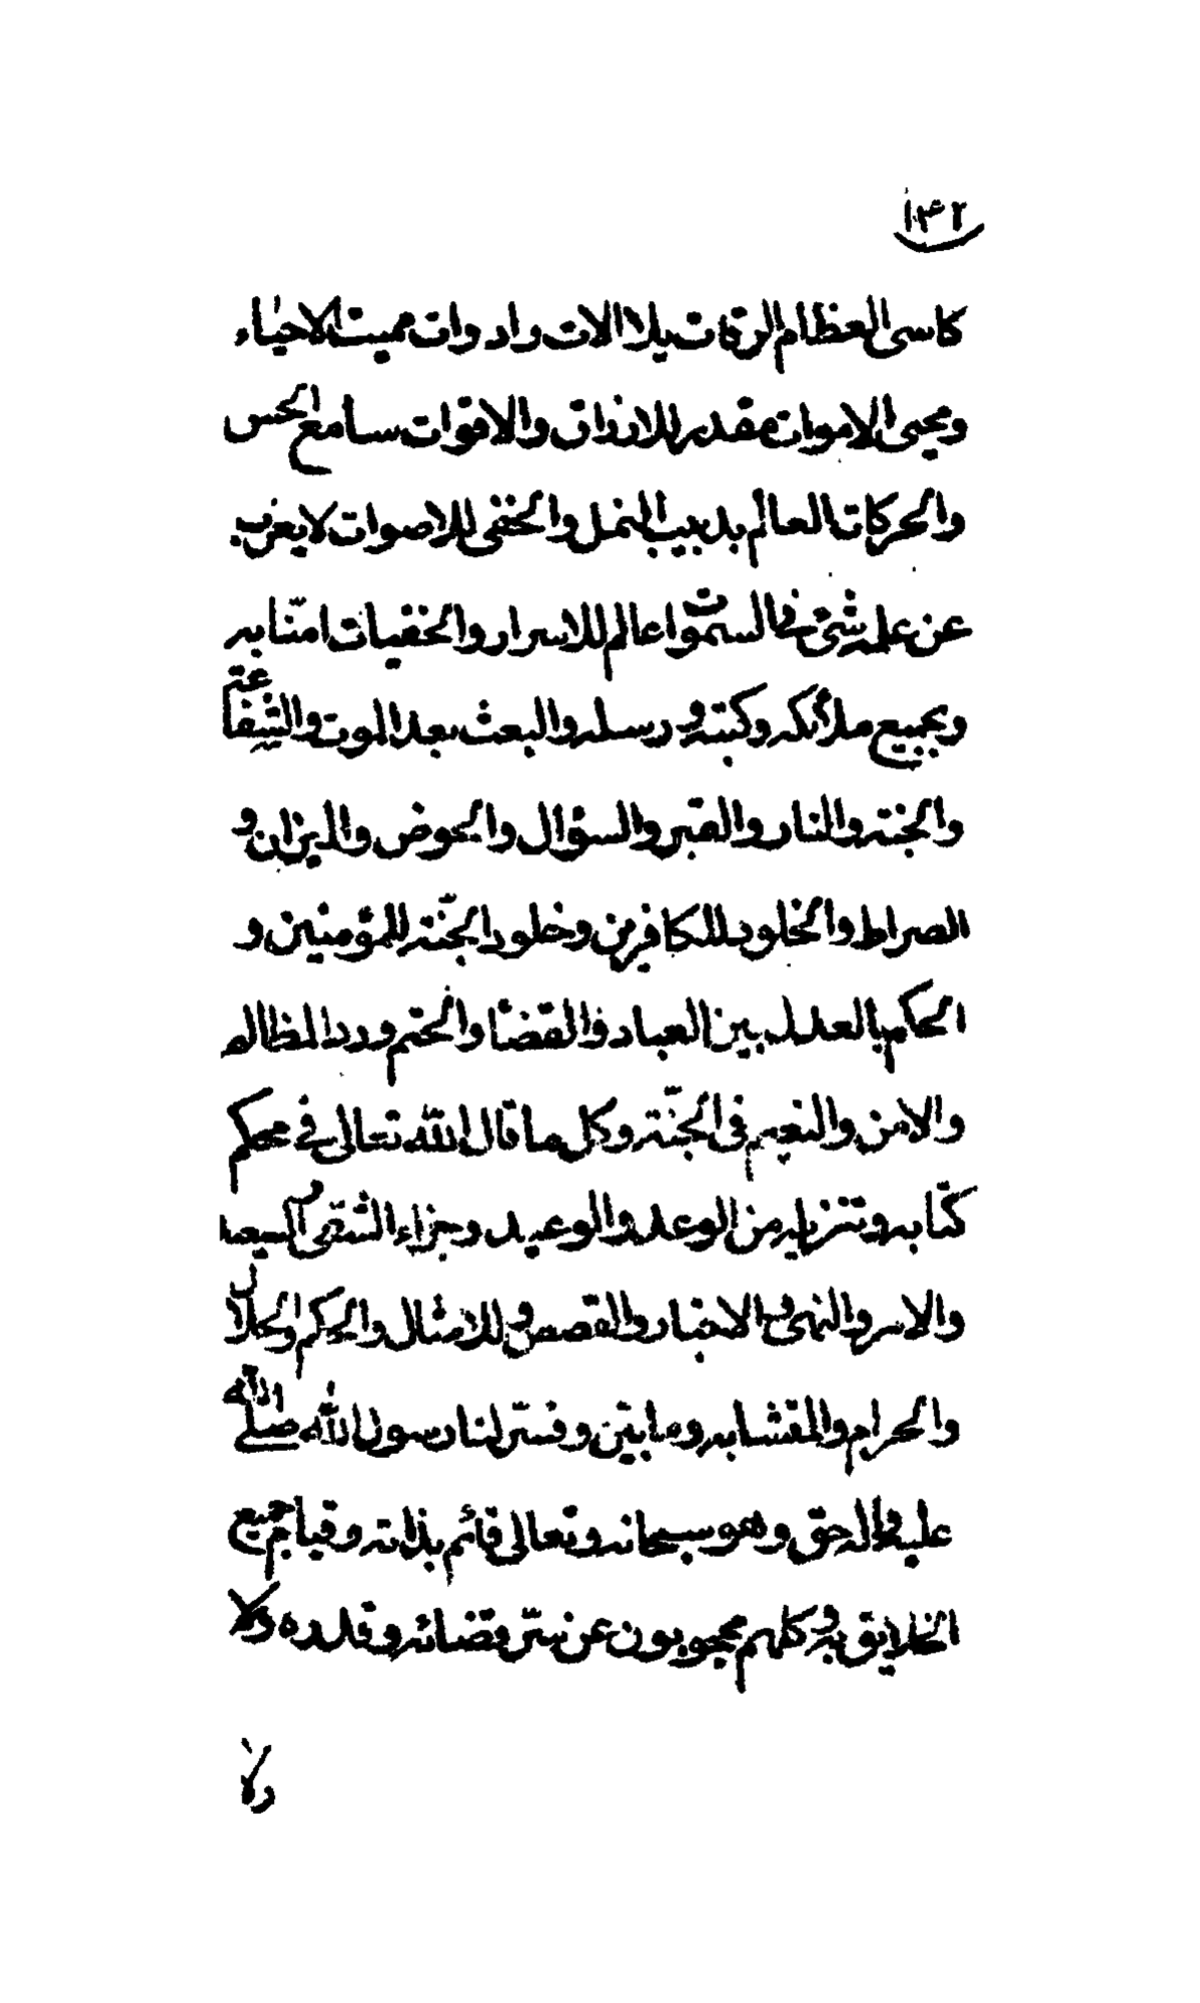 ١٤٢
كاسى العظام الرفات بلا الات وادوات مميت الاحياء
ومحيى الاموات مقدر للارزاق والاقوات سامع الحس
والحركات العالم بدبيب النمل والخفى للاصوات لا يعزب
عن علمه شئ فى السموات عالم للاسرار والخفيات امنّا به
وبجميع ملائكه وكتبه ورسله والبعث بعد الموت والشفاعة
والجنه والنار والقبر والسؤال والحوض والميزان و
الصراط والخلود للكافرين وخلود الجنّه للمؤمنين و
الحكم بالعدل بين العباد فى القضا والحتم ورد المظالم
والامن والنعيم فى الجنّه وكل ما قال الله تعالى فى محكم
كتابه وتنزيله من الوعد والوعيد وجزاء الشقى والسعيد
والامر والنهى والاخبار والقصص وللامثال والحكم والحلال
والحرام والمتشابه وما بيّن وفسّر لنا رسول الله صلى الله
عليه واله حق وهو سبحانه وتعالى قائم بذاته وقيام جميع
الخلايق به وكلهم محجوبون عن سرّ قضائه وقدره ولا
ولا